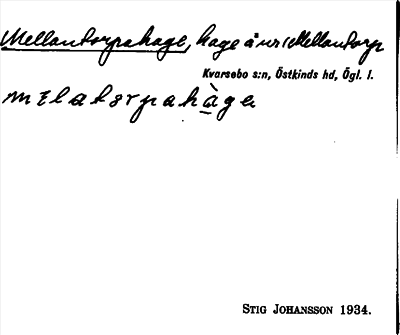 Mellantorpahage, hage å urs Mellantorp
Kvarsebo s:n, Östkinds hd, Ögl. l.
mɛlatɔrpahàga
STIG JOHANSSON 1934.